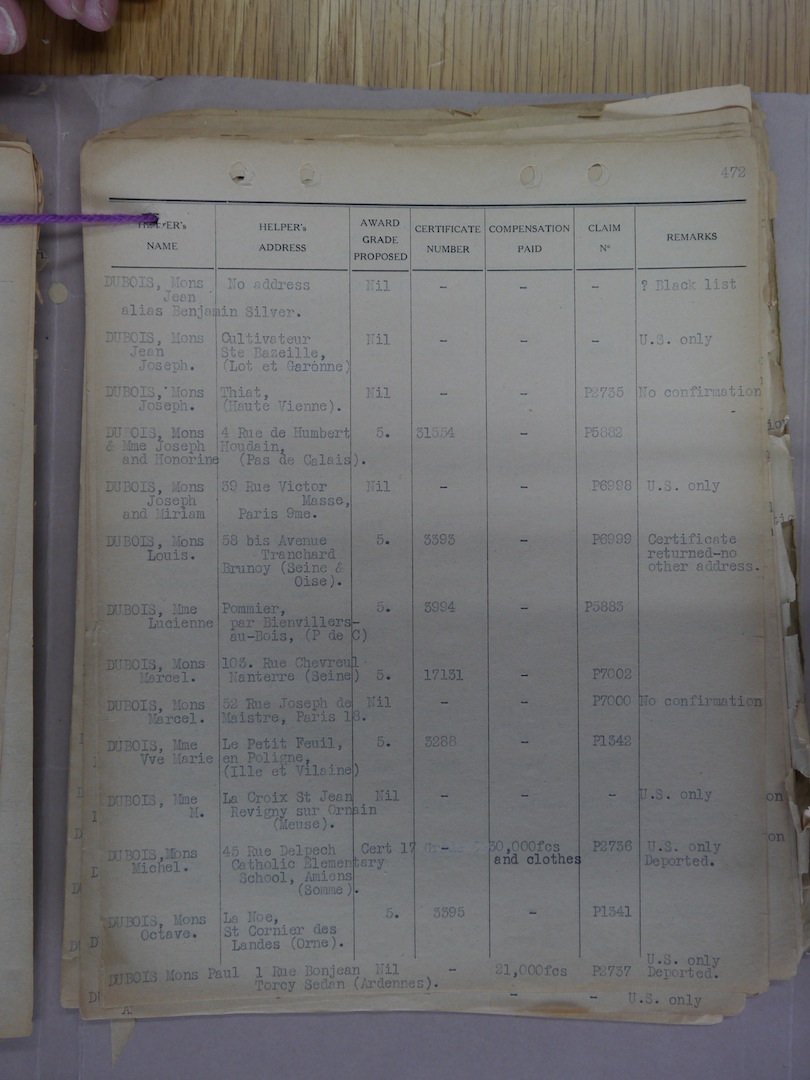 472
HELPER's NAME | HELPER's ADDRESS | AWARD GRADE PROPOSED | CERTIFICATE NUMBER | COMPENSATION PAID | CLAIM N° | REMARKS
DUBOIS, Mons No address Nil - - - ? Black list
Jean
alias Benjamin Silver.
DUBOIS, Mons Cultivateur Nil - - - U.S. only
Jean Ste Bazeille,
Joseph. (Lot et Garonne)
DUBOIS, Mons Thiat, Nil - - P2735 No confirmation
Joseph. (Haute Vienne).
DUBOIS, Mons 4 Rue de Humbert 5. 31554 - P5882
& Mme Joseph Houdain,
and Honorine (Pas de Calais).
DUBOIS, Mons 59 Rue Victor Nil - - P6998 U.S. only
Joseph Masse,
and Miriam Paris 9me.
DUBOIS, Mons 58 bis Avenue 5. 3393 - P6999 Certificate
Louis. Tranchard returned-no
Brunoy (Seine & other address.
Oise).
DUBOIS, Mme Pommier, 5. 3994 - P5883
Lucienne par Bienvillers-
au-Bois, (P de C)
DUBOIS, Mons 103. Rue Chevreul
Marcel. Nanterre (Seine) 5. 17131 - P7002
DUBOIS, Mons 52 Rue Joseph de Nil - - P7000 No confirmation
Marcel. Maistre, Paris 18.
DUBOIS, Mme Le Petit Feuil, 5. 3288 - P1342
Vve Marie en Poligne,
(Ille et Vilaine)
DUBOIS, Mme La Croix St Jean Nil - - - U.S. only
M. Revigny sur Ornain
(Meuse).
DUBOIS,Mons 45 Rue Delpech Cert 17 - 30,000fcs P2736 U.S. only
Michel. Catholic Elementary and clothes Deported.
School, Amiens
(Somme).
DUBOIS, Mons La Noe, 5. 3395 - P1341
Octave. St Cornier des
Landes (Orne).
U.S. only
DUBOIS Mons Paul 1 Rue Bonjean Nil - 21,000fcs P2737 Deported.
Torcy Sedan (Ardennes).
- - U.S. only